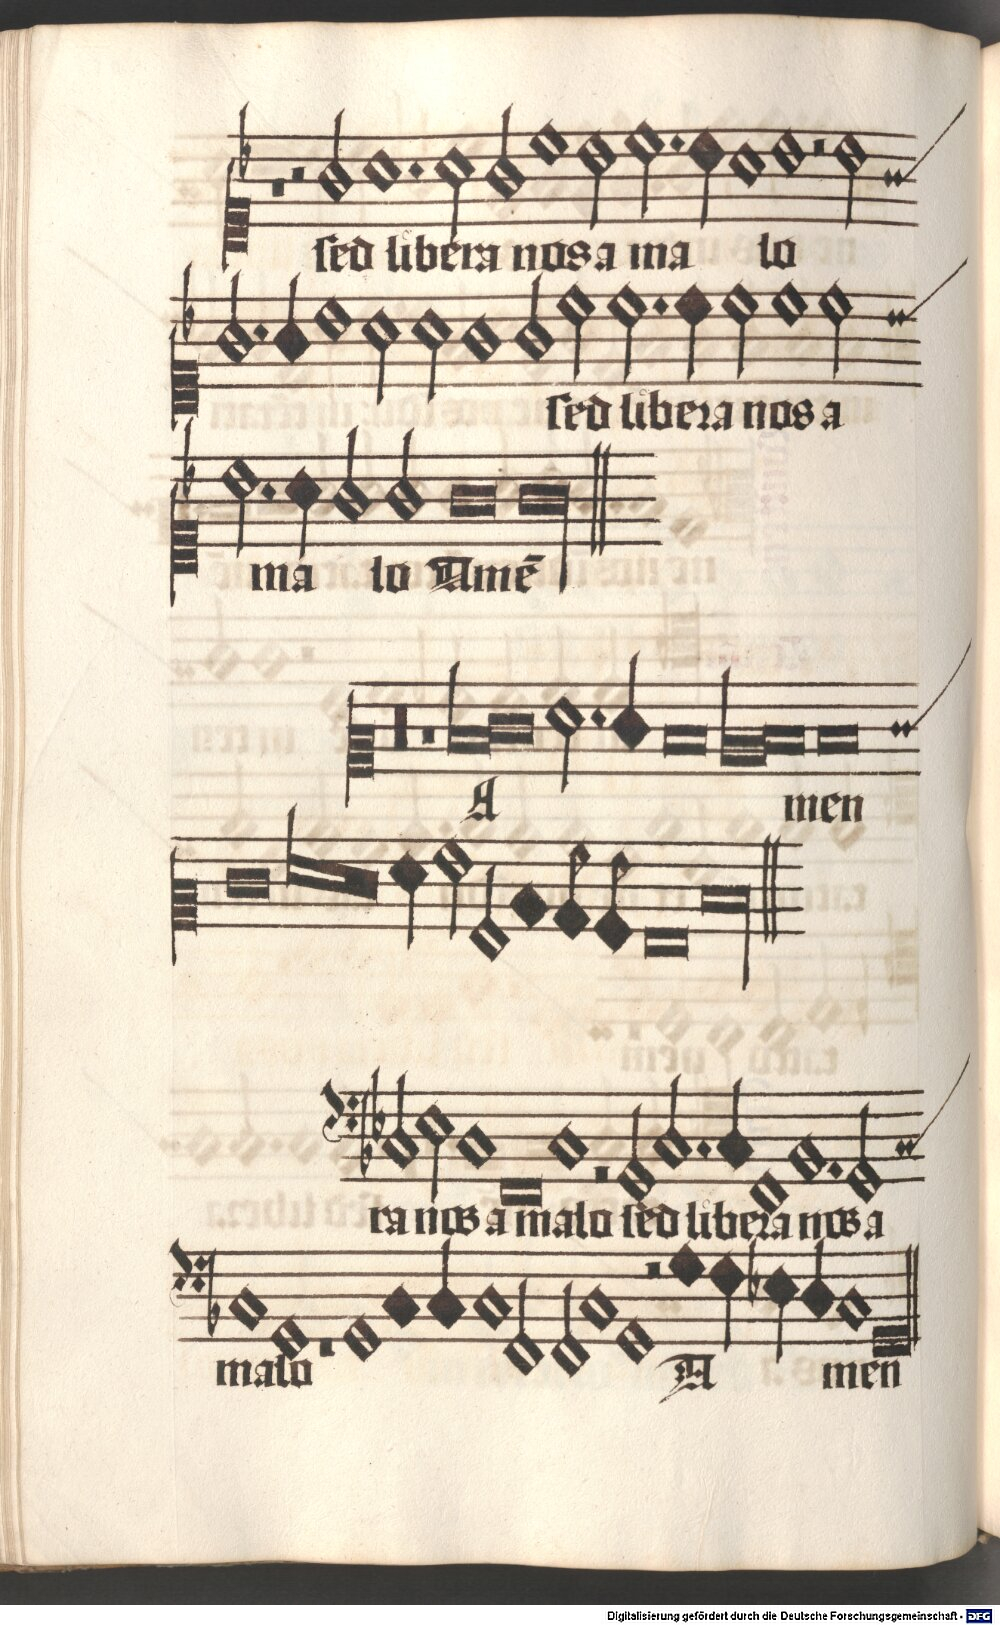 sed libera nos a ma lo
sed libera nos a
ma lo Amē
A men
ra nos a malo sed libera nos a
malo A men
Digitalisierung gefördert durch die Deutsche Forschungsgemeinschaft - DFG